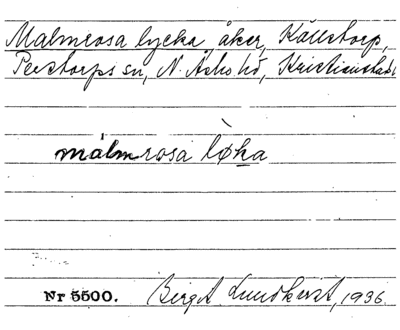 Malmrosa lycka, åker, Källstorp,
Perstorps sn, N. Åsbo hd, Kristianstads l
málmrosa lø̀ka
Nr 5500. Birgit Lundkvist, 1936.